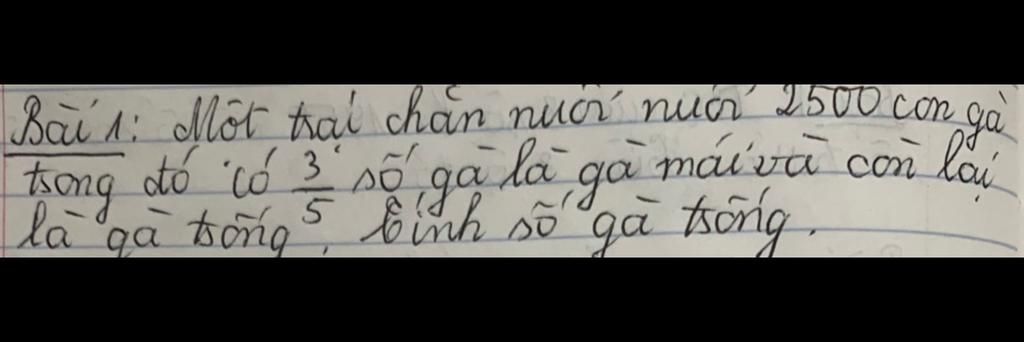 Bài 1: Một trại chăn nuôi nuôi 2500 con gà
trong đó có 3/5 số gà là gà mái và còn lại
là gà trống. Tính số gà trống.